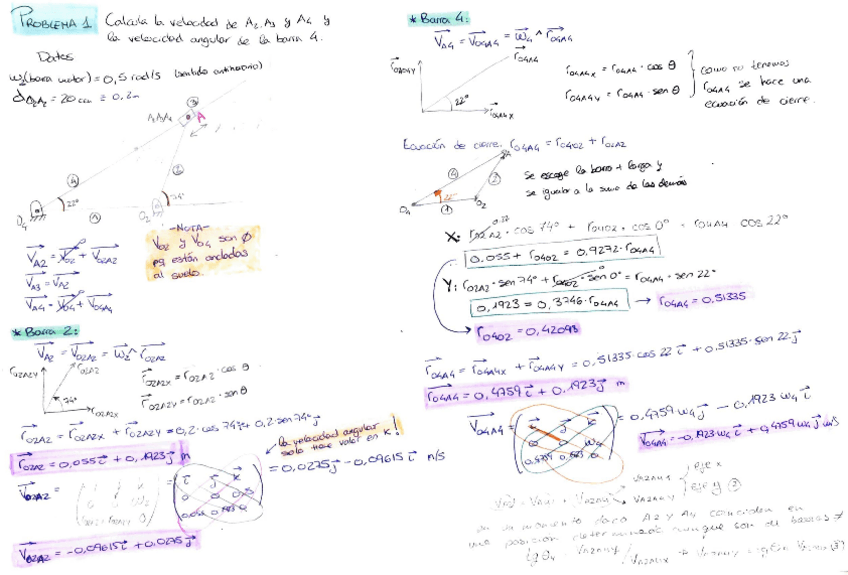 PROBLEMA 1 Calcula la velocidad de A2, A3 y A4 y
la velocidad angular de la barra 4.
Datos
ω2(barra motor) = 0,5 rad/s (sentido antihorario)
dO2A2 = 20 cm = 0,2m
A2A3A4
A
22°
74°
O4
O2
-NOTA-
VO2 y VO4 son 0
pq están ancladas
al suelo.
VA2 = VO2 + VO2A2
VA3 = VA2
VA4 = VO4 + VO4A4
* Barra 2:
VA2 = VO2A2 = ω2 ^ rO2A2
rO2A2Y
rO2A2
74°
rO2A2X
rO2A2X = rO2A2 · cos θ
rO2A2Y = rO2A2 · sen θ
rO2A2 = rO2A2X + rO2A2Y = 0,2 · cos 74 i + 0,2 · sen 74 j
rO2A2 = 0,055 i + 0,1923 j m
la velocidad angular
solo tiene valor en K!
VO2A2 =
i j k
0 0 0,5
= 0,0275 j - 0,09615 i m/s
VA2A2 = -0,09615 i + 0,0275 j
* Barra 4:
VA4 = VO4A4 = ω4 ^ rO4A4
rO4A4Y
rO4A4
22°
rO4A4X
rO4A4X = rO4A4 · cos θ
rO4A4Y = rO4A4 · sen θ
como no tenemos
rO4A4 se hace una
ecuación de cierre.
Ecuación de cierre, rO4A4 = rO4O2 + rO2A2
se escoge la barra + larga y
se iguala a la suma de las demás
O4
O2
X: rO2A2 · cos 74° + rO4O2 · cos 0° = rO4A4 cos 22°
0.055 + rO4O2 = 0.9272 · rO4A4
Y: rO2A2 · sen 74° + rO4O2 · sen 0° = rO4A4 · sen 22°
0,1923 = 0,3746 · rO4A4 → rO4A4 = 0,51335
rO4O2 = 0,42093
rO4A4 = rO4A4X + rO4A4Y = 0,51335 · cos 22 i + 0,51335 · sen 22 j
rO4A4 = 0,4759 i + 0,1923 j m
VO4A4
= 0,4759 ω4 j - 0,1923 ω4 i
VO4A4 = -0,1923 ω4 i + 0,4759 ω4 j m/s
eje x
eje y
momento dado A2 y A4 coinciden en
una posición determinada aunque son de barras ≠